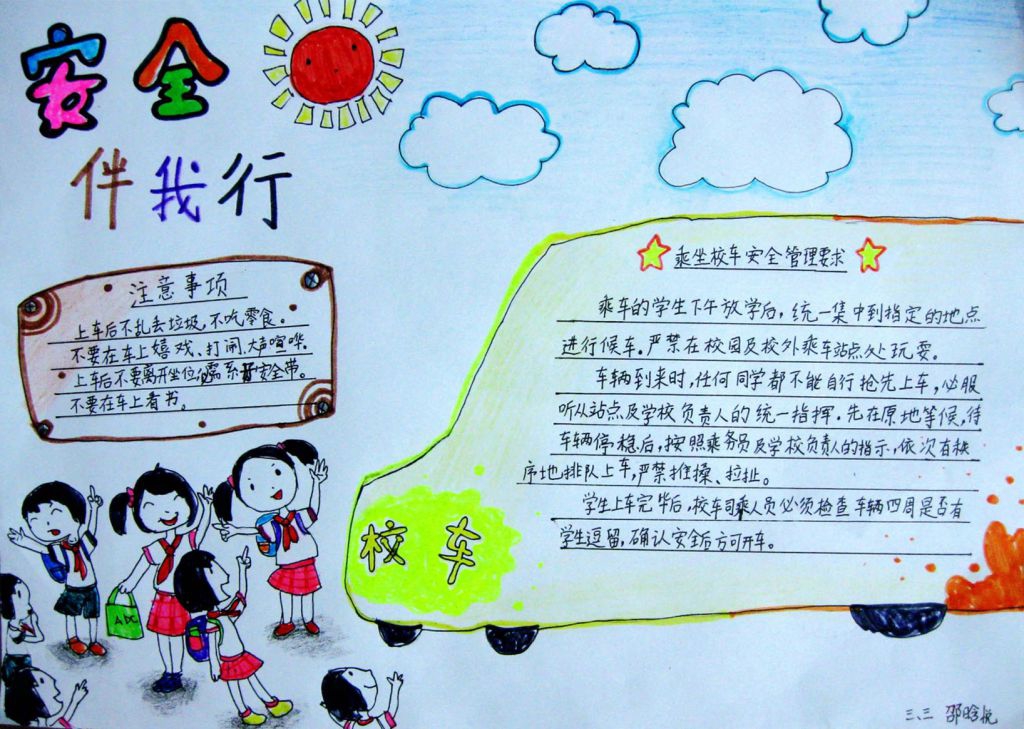 安全
伴我行
注意事项
上车后不乱丢垃圾,不吃零食。
不要在车上嬉戏、打闹、大声喧哗。
上车后不要离开坐位,需系好安全带。
不要在车上看书。
ABC
校车
乘坐校车安全管理要求
乘车的学生下午放学后,统一集中到指定的地点
进行候车。严禁在校园及校外乘车站点处玩耍。
车辆到来时,任何同学都不能自行抢先上车,必服
听从站点及学校负责人的统一指挥.先在原地等候,待
车辆停稳后,按照乘务员及学校负责人的指示,依次有秩
序地排队上车,严禁推搡、拉扯。
学生上车完毕后,校车司乘人员必须检查车辆四周是否有
学生逗留,确认安全后方可开车。
三、三 邵晗悦